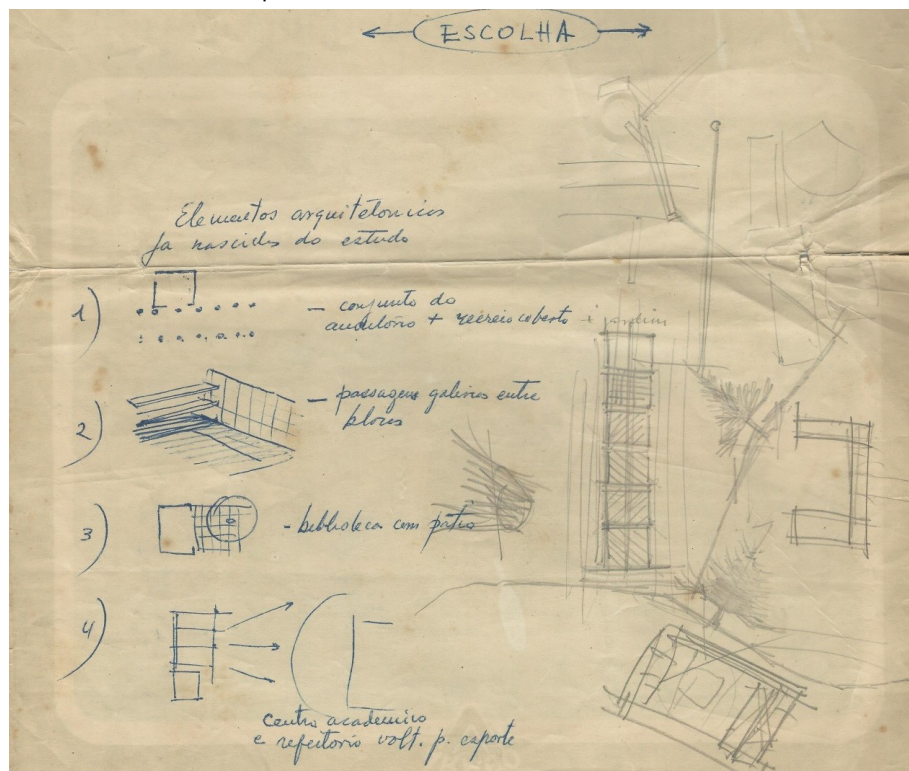 ESCOLHA
Elementos arquitetonicos
ja nascidos do estudo
1) — conjunto do
auditório + recreio coberto + jardim
2) — passagens galerias entre
blocos
3) - biblioteca com pátio
4)
Centro academico
e refeitorio volt. p. esporte